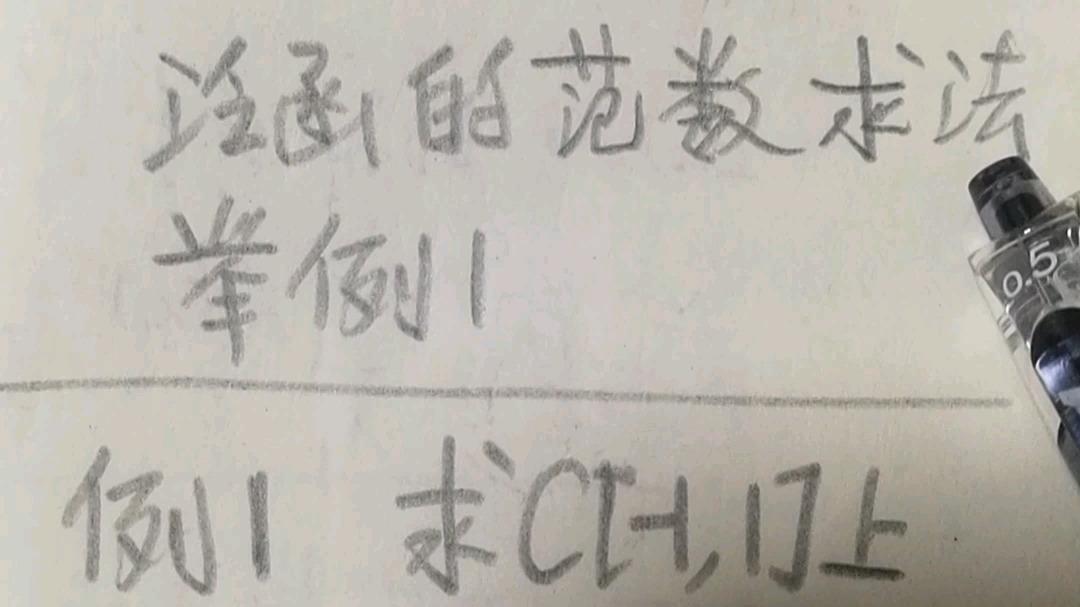 泛函的范数求法
举例1
例1 求C[-1,1]上
0.5